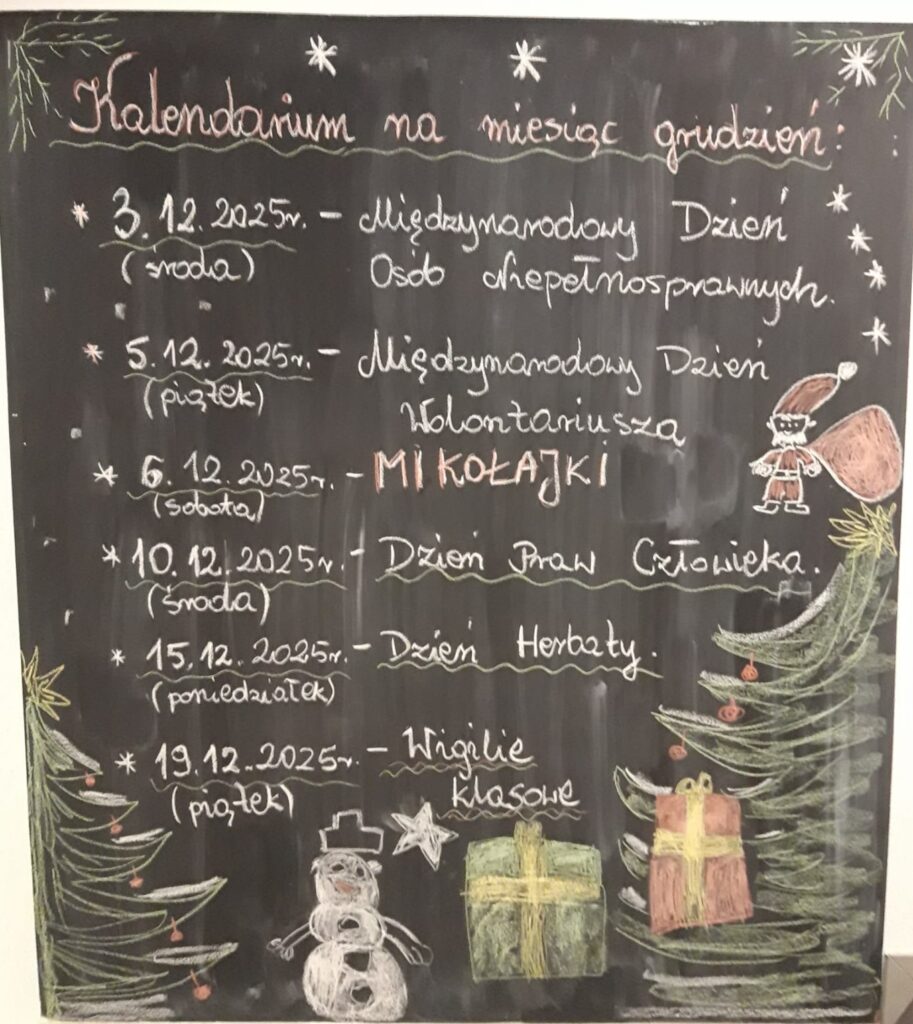 Kalendarium na miesiąc grudzień:
* 3.12.2025r. - Międzynarodowy Dzień
(środa) Osób Niepełnosprawnych.
* 5.12.2025r. - Międzynarodowy Dzień
(piątek) Wolontariusza
* 6.12.2025r. - MIKOŁAJKI
(sobota)
* 10.12.2025r. - Dzień Praw Człowieka.
(środa)
* 15.12.2025r. - Dzień Herbaty.
(poniedziałek)
* 19.12.2025r. - Wigilie
(piątek) klasowe